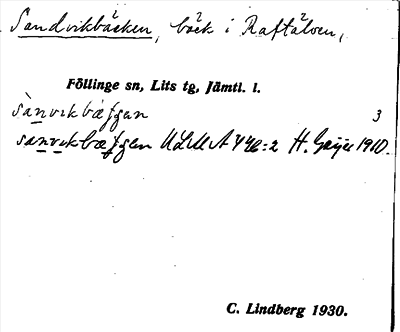 Sandvikbäcken, bäck i Raftälven,
Föllinge sn, Lits tg, Jämtl. l.
sànvikbæʃgen 3
sanvikbæʃgen ULMA 446:2 H. Geijer 1910.
C. Lindberg 1930.